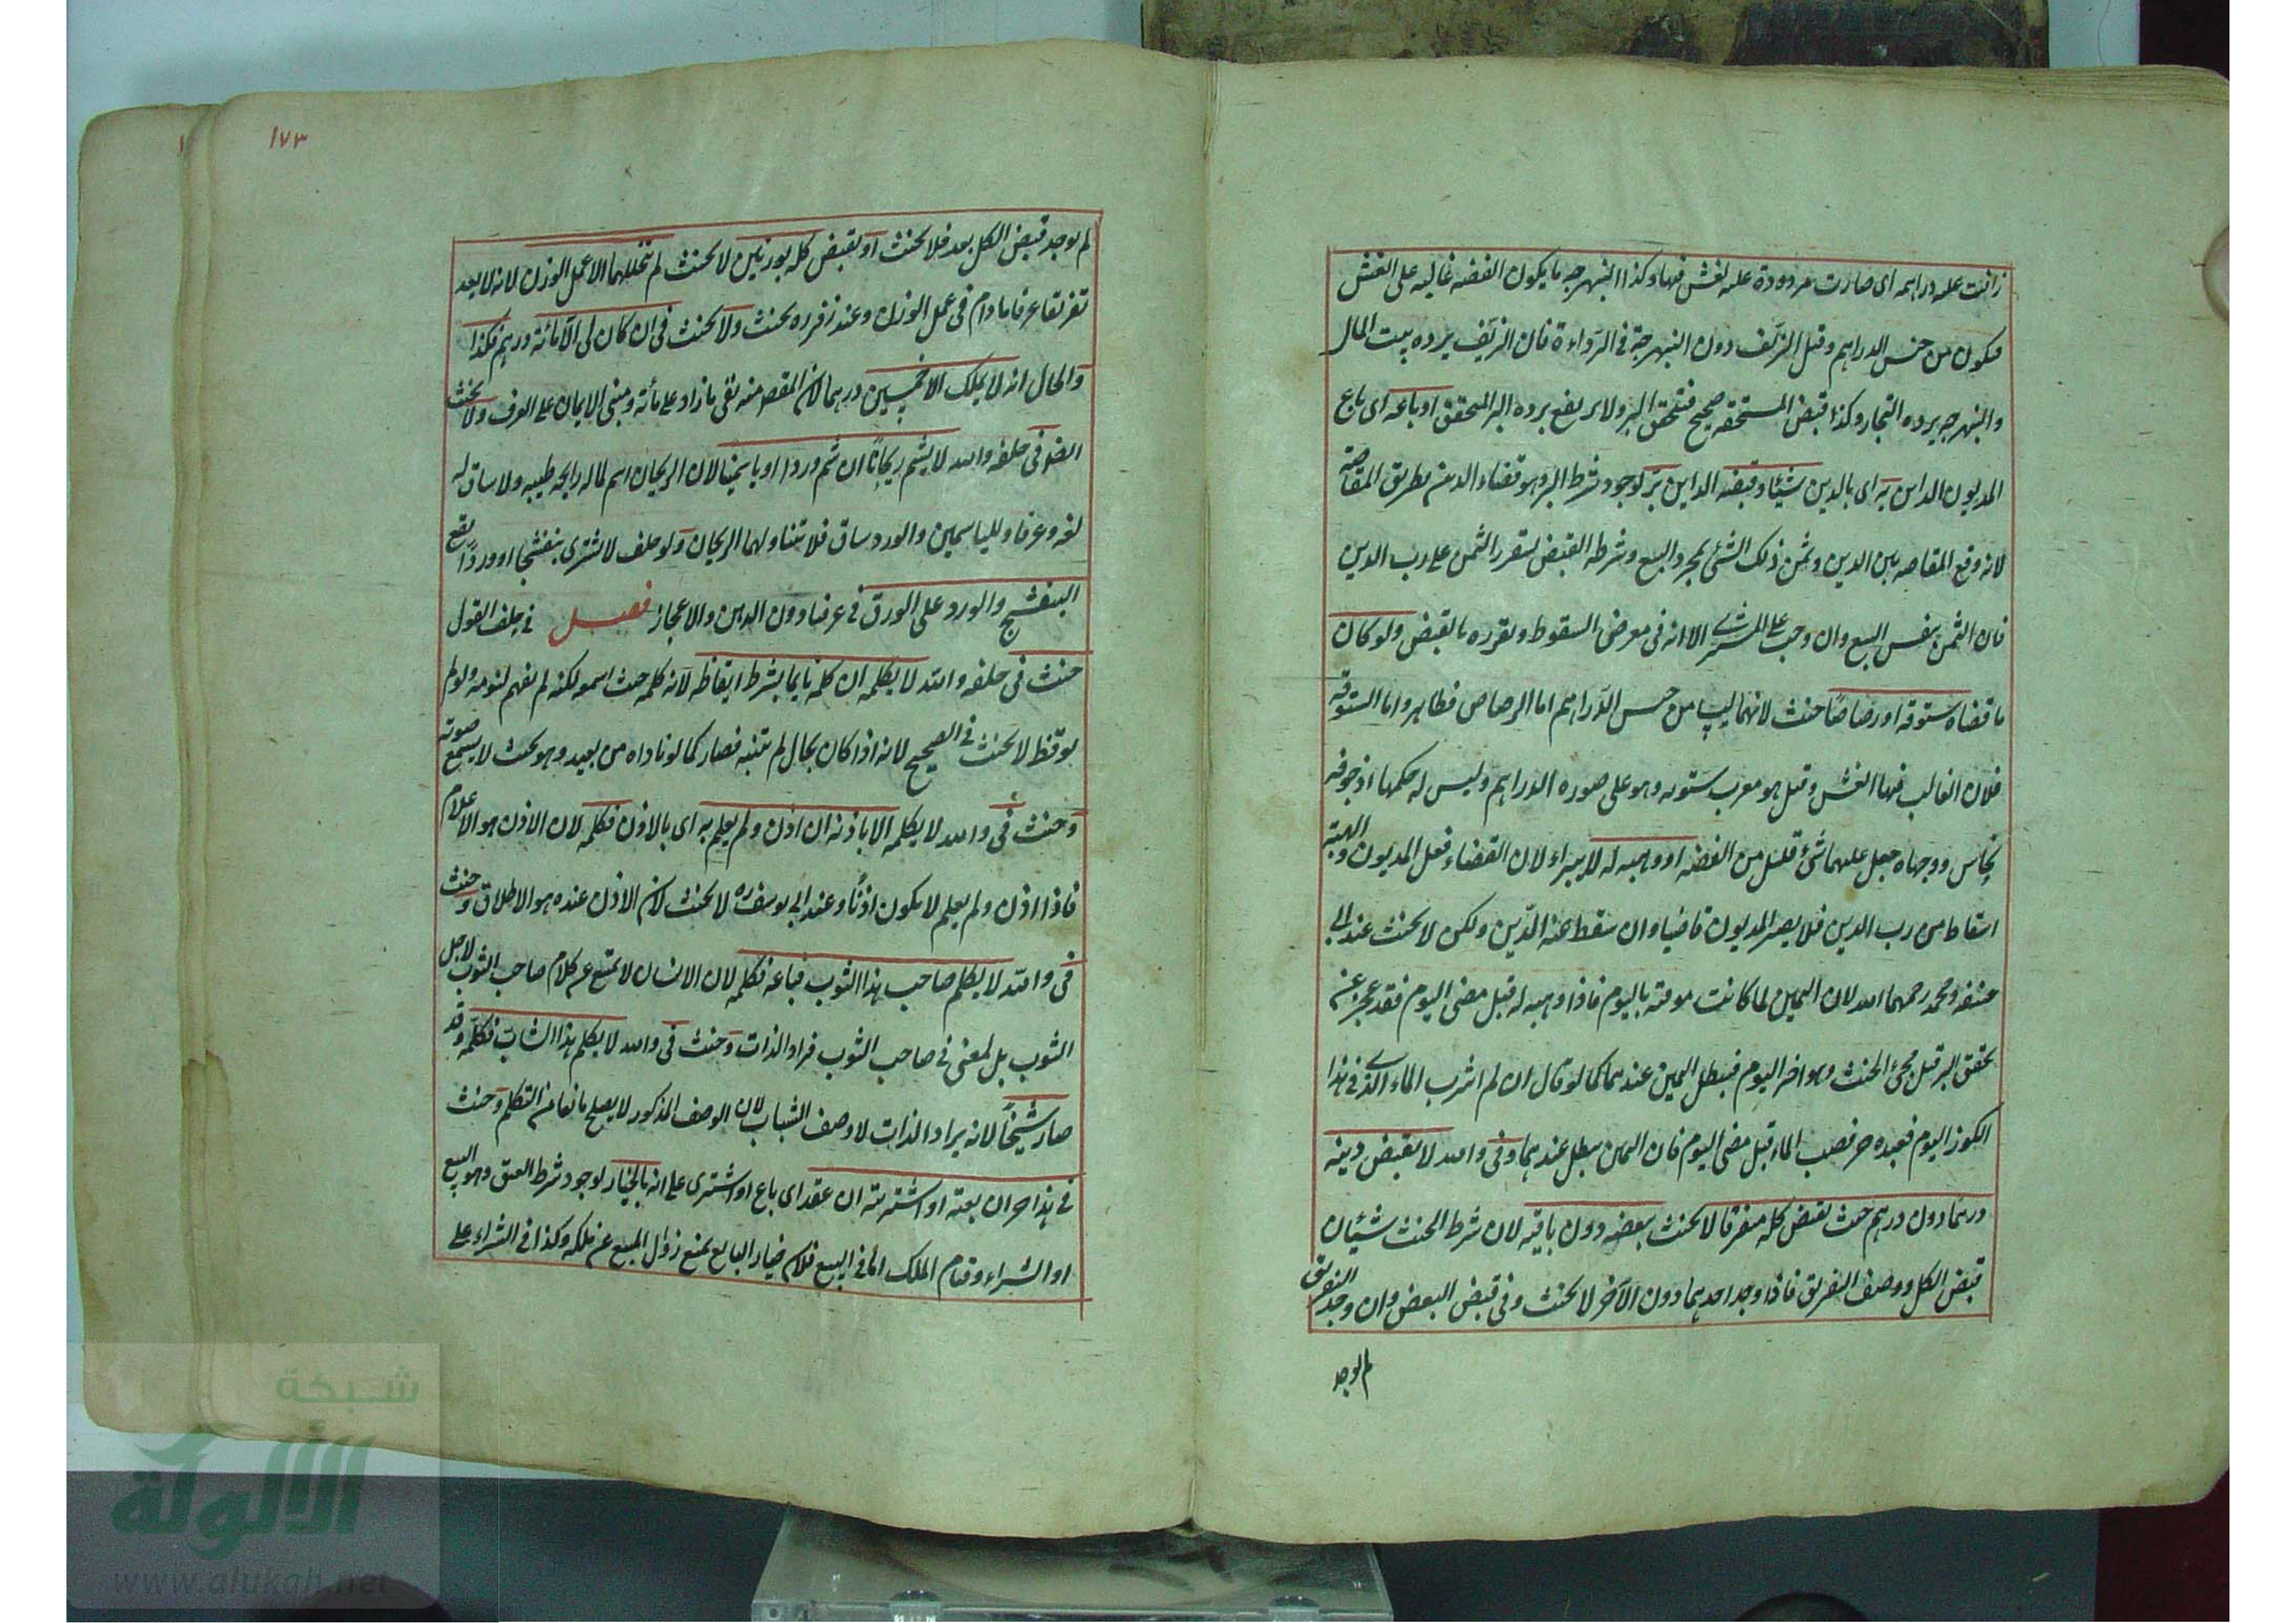 زافت عليه دراهمه اى صارت مردودة عليه لغش فيها وكذا النبهرجه ما يكون الفضه غالبه على الغش
فيكون من جنس الدراهم وقيل الزيف دون النبهرجة فى الرداءة فان الزيف يرده بيت المال
والنبهرجه يرده التجار وكذا قبض المستحقه صحيح فتحقق البر ولا يرتفع برده البر المحقق او باعه اى باع
المديون الداين به اى بالدين شيئا وقبضه الداين بر لوجود شرط البر وهو قضاء الدين بطريق المقاصه
لانه وقع المقاصه بين الدين وثمن ذلك الشئ بمجرد البيع وشرطه القبض ليتقرر الثمن على رب الدين
فان الثمن بنفس البيع وان وجب على المشترى الا انه فى معرض السقوط وتقرره بالقبض ولو كان
ما قضاه ستوقه او رصاصًا حنث لانهما ليسا من جنس الدراهم اما الرصاص فظاهر واما الستوقه
فلان الغالب فيها الغش وقيل هو معرب ستوته وهو على صوره الدراهم وليس له حكمها اذ جوفه
نحاس ووجهاه جعل عليهما شئ قليل من الفضه او وهبه له لا يبراء لان القضاء فعل المديون والهبة
اسقاط من رب الدين فلا يصير المديون قاضيا وان سقط عنه الدين ولكن لا يحنث عند ابى
حنيفه ومحمد رحمهما الله لان اليمين لما كانت موقته باليوم فاذا وهبه له قبل مضى اليوم فقد عجز عن
تحقق البر قبل مجئ الحنث وهو اخر اليوم فيبطل اليمين عندهما كما لو قال ان لم اشرب الماء الذى فى هذا
الكوز اليوم فعبده حر فصب الماء قبل مضى اليوم فان اليمين يبطل عندهما وفى والله لا يقبض دينه
درهما دون درهم حنث بقبض كله متفرقا لا يحنث ببعضه دون باقيه لان شرط الحنث شيئان
قبض الكل ووصف التفريق فاذا وجد احدهما دون الآخر لا يحنث وفى قبض البعض وان وجد التفريق
لم يوجد
١٧٣
لم يوجد قبض الكل بعد فلا يحنث او بقبض كله بوزنين لا يحنث لم يتخللهما الا عمل الوزن لانه لا يعد
تفريقا عرفا ما دام فى عمل الوزن وعند زفر ره يحنث ولا يحنث فى ان كان لى الا مائة درهم فكذا
والحال انه لا يملك الا خمسين درهما لان المقص منه نفى ما زاد على مأئة ومبنى الايمان على العرف ولا يحنث
ايضو فى حلفه والله لا يشم ريحانًا ان شم وردا او ياسمينا لان الريحان اسم لما له رايحه طيبه ولا ساق له
لغه وعرفا ولليا سمين والورد ساق فلا يتناولهما الريحان ولو حلف لا يشترى بنفشجا او وردًا يقع
البنفشج والورد على الورق فى عرفنا دون الدهن والاعجاز فصل فى حلف القول
حنث فى حلفه والله لا يكلمه ان كلمه نايما بشرط ايقاظه لانه كلمه حيث اسمو لكنه لم يفهم لنومه ولو لم
يوقظ لا يحنث فى الصحيح لانه اذا كان بحال لم يتنبه فصار كما لو ناداه من بعيد وهو بحيث لا يسمع صوته
وحنث فى والله لا يكلمه الا باذنه ان اذن ولم يعلم به اى بالاذن فكلمه لان الاذن هو الاعلام
فاذا اذن ولم يعلم لا يكون اذنًا وعند ابى يوسف ره لا يحنث لان الاذن عنده هو الاطلاق وحنث
فى والله لا يكلم صاحب هذا الثوب فباعه فكلمه لان الانسان لا يمتنع عن كلام صاحب الثوب لاجل
الثوب بل لمعنى فى صاحب الثوب فراد الذات وحنث فى والله لا يكلم هذا الشاب فكلمه وقد
صار شيخًا لانه يراد الذات لا وصف الشباب لان الوصف المذكور لا يصلح مانعا من التكلم وحنث
فى هذا حر ان بعته او اشتريته ان عقد اى باع او اشترى على انه بالخيار لوجود شرط العتق وهو البيع
او الشراء وقيام الملك اما فى البيع فلان خيار البايع يمنع زوال المبيع عن ملكه وكذا فى الشراء على
شبكة
الألوكة
www.alukah.net